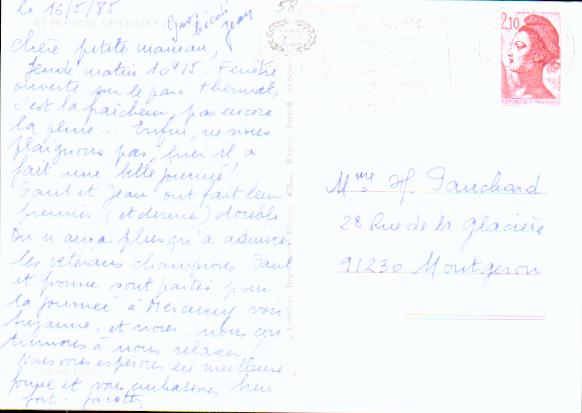 le 16/5/85
ST HONORE-LES-BAINS
Gros bécots
Jean
Chère petite maman,
Jeudi matin 10h15. Fenêtre
ouverte sur le parc thermal,
c'est la fraîcheur, pas encore
la pluie... Enfin, ne nous
plaignons pas, hier il a
fait une belle journée !
Paul et Jean ont fait leur
premier (et dernier) double
On n'aura plus qu'à admirer
les vétérans champions. Paul
et Yvonne sont partis pour
la journée à voir
Suzanne, et nous, nous con
tinuons à nous relaxer !
Nous vous espérons en meilleure
forme et vous embrassons bien
fort.
2,10
REPUBLIQUE FRANÇAISE
Mme H. Pauchard
28 Rue de la Glacière
91230 Montgeron